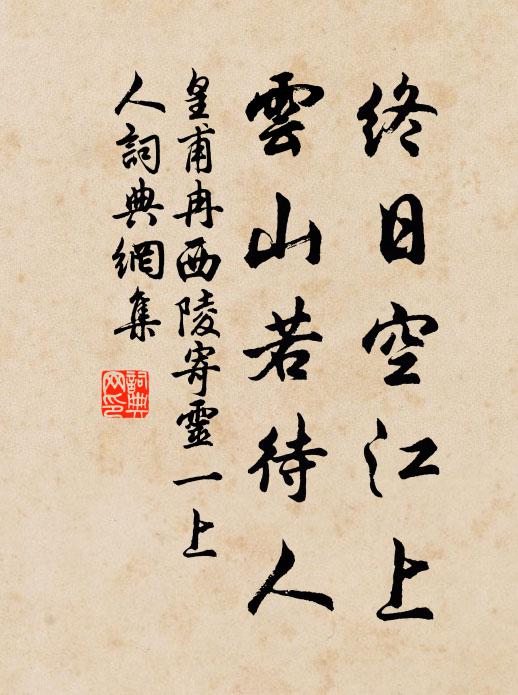 終日空江上
雲山若待人
皇甫冉西陵寄靈一上
人詞典網集
詞典
网印